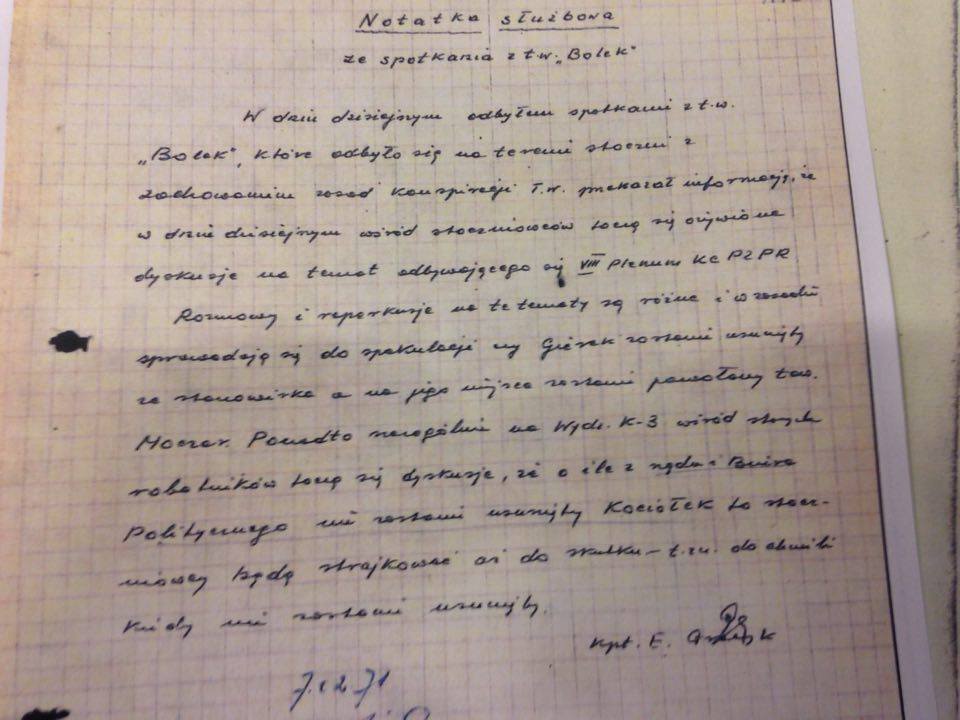 Notatka służbowa
ze spotkania z t.w. „Bolek"
W dniu dzisiejnym odbyłem spotkanie z t.w.
„Bolek", które odbyło się na terenie stoczni z
zachowaniem zasad konspiracji T.w. przekazał informację, że
w dniu dzisiejnym wśród stoczniowców toczą się ożywione
dyskusje na temat odbywającego się VIII Plenum KC PZPR
Rozmowy i reperkusje na te tematy są różne i w zasadzie
sprowadzają się do spekulacji czy Gierek zostanie usunięty
ze stanowiska a na jego miejsce zostanie powołany tow.
Moczar. Ponadto szczególnie na Wydz. K-3 wśród starych
robotników toczą się dyskusje, że o ile z rządu i Biura
Politycznego nie zostanie usunięty Kociołek to stocz-
niowcy będą strajkować aż do skutku – t.zn. do chwili
kiedy nie zostanie usunięty.
Kpt. E.
7.i2.71